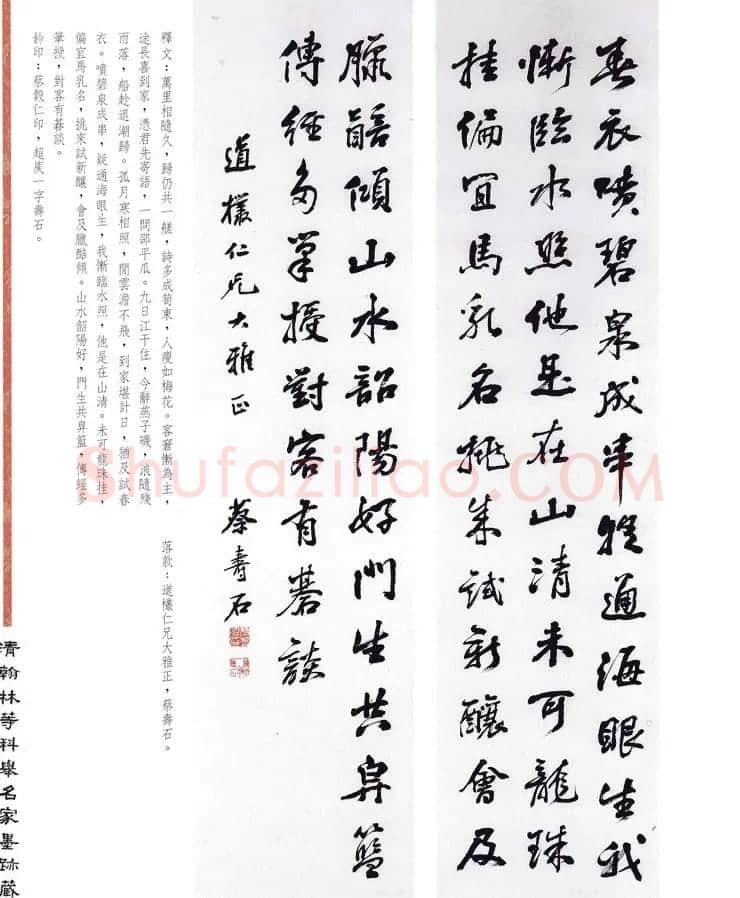 春衣噴碧泉成串疑通海眼生我
慚臨水照他是在山清未可龍珠
挂偏宜馬乳名挑來試新釀會及
臘醅傾山水韶陽好門生共舁籃
傳經多筆授對客有碁談
道欀仁兄大雅正 蔡壽石
釋文:萬里相隨久,歸仍共一艖,詩多成筍束,人瘦如梅花。客窘慚為主,
途長喜到家,憑君先寄語,一問邵平瓜。九日江干住,今辭燕子磯,浪隨殘
雨落,船趁退潮歸。孤月寒相照,閒雲澹不飛,到家堪計日,猶及試春
衣。噴碧泉成串,疑通海眼生,我慚臨水照,他是在山清。未可龍珠挂,
偏宜馬乳名,挑來試新釀,會及臘醅傾。山水韶陽好,門生共舁籃,傳經多
筆授,對客有碁談。
鈐印:蔡穀仁印,超庚一字壽石。
落款:道欀仁兄大雅正,蔡壽石。
清翰林等科舉名家墨跡藏
Shufaziliao.COM